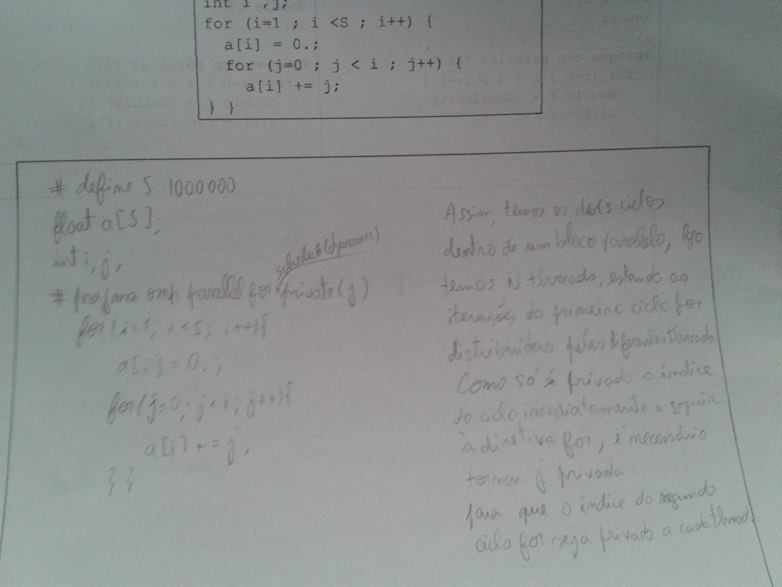 int i ,j;
for (i=1 ; i <S ; i++) {
a[i] = 0.;
for (j=0 ; j < i ; j++) {
a[i] += j;
} }
# define S 1000000
float a[S];
int i, j;
schedule(dynamic)
# pragma omp parallel for private(j)
for(i=1; i<S; i++){
a[i]=0.;
for(j=0; j<i; j++){
a[i] += j;
} }
Assim, temos os dois ciclos
dentro de um bloco paralelo, logo
temos N threads, estando as
iterações do primeiro ciclo for
distribuídas pelas diferentes threads.
Como só é privado o índice
do ciclo imediatamente a seguir
à diretiva for, é necessário
tornar j privada
para que o índice do segundo
ciclo for seja privado a cada thread.